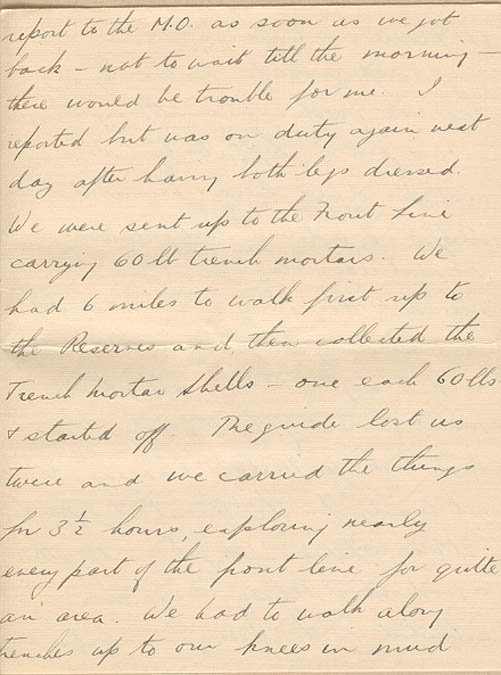 report to the M.O. as soon as we got
back - not to wait till the morning -
there would be trouble for me. I
reported but was on duty again next
day after having both legs dressed.
We were sent up to the Front Line
carrying 60 lb trench mortars. We
had 6 miles to walk first up to
the Reserves and then collected the
Trench Mortar Shells - one each 60 lbs
& started off. The guide lost us
twice and we carried the things
for 3½ hours, exploring nearly
every part of the front line for quite
an area. We had to walk along
trenches up to our knees in mud